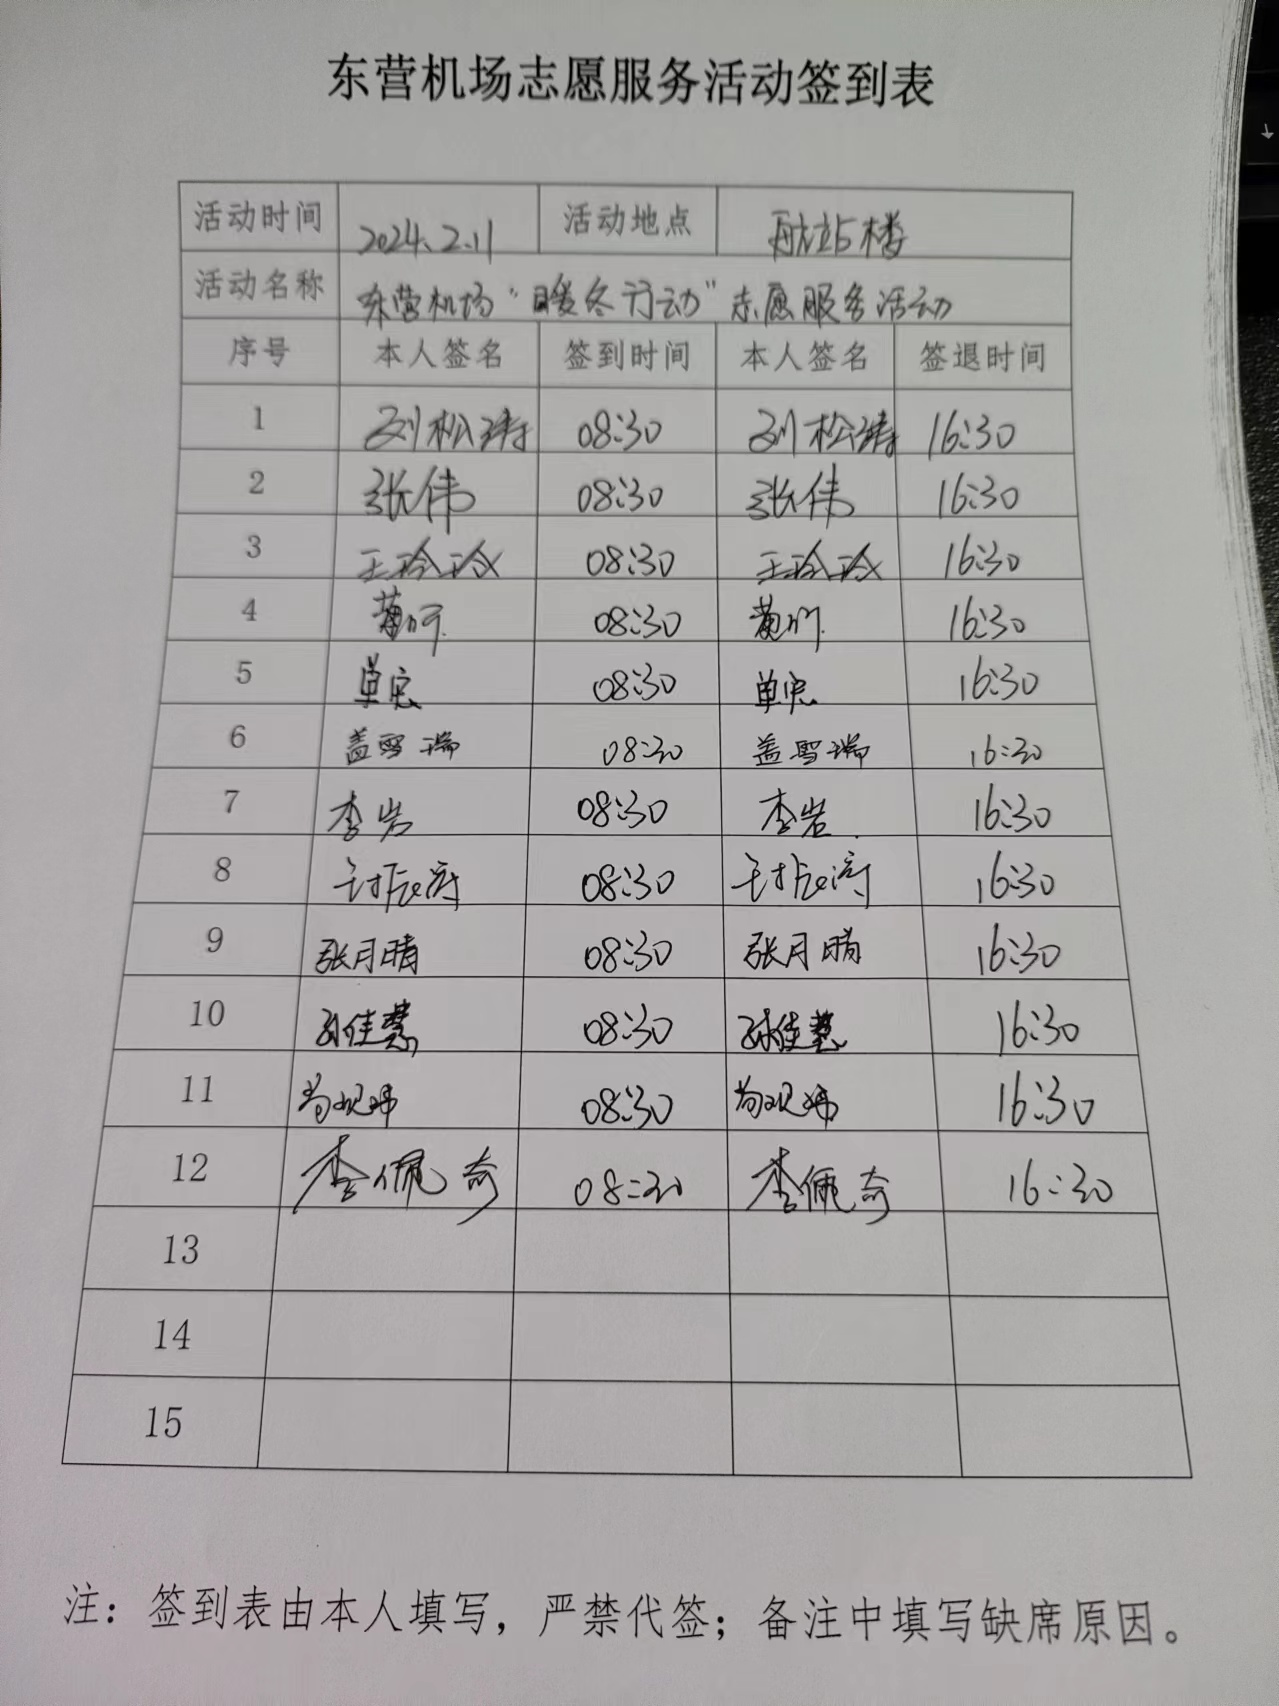 东营机场志愿服务活动签到表
活动时间 2024.2.11 活动地点 航站楼
活动名称 东营机场“暖冬行动”志愿服务活动
序号 本人签名 签到时间 本人签名 签退时间
1 刘松涛 08:30 刘松涛 16:30
2 张伟 08:30 张伟 16:30
3 王玲玲 08:30 王玲玲 16:30
4 08:30 16:30
5 单宏 08:30 单宏 16:30
6 盖雪瑞 08:30 盖雪瑞 16:30
7 李岩 08:30 李岩 16:30
8 08:30 16:30
9 张月晴 08:30 张月晴 16:30
10 孙佳慧 08:30 孙佳慧 16:30
11 08:30 16:30
12 李佩奇 08:30 李佩奇 16:30
13
14
15
注：签到表由本人填写，严禁代签；备注中填写缺席原因。